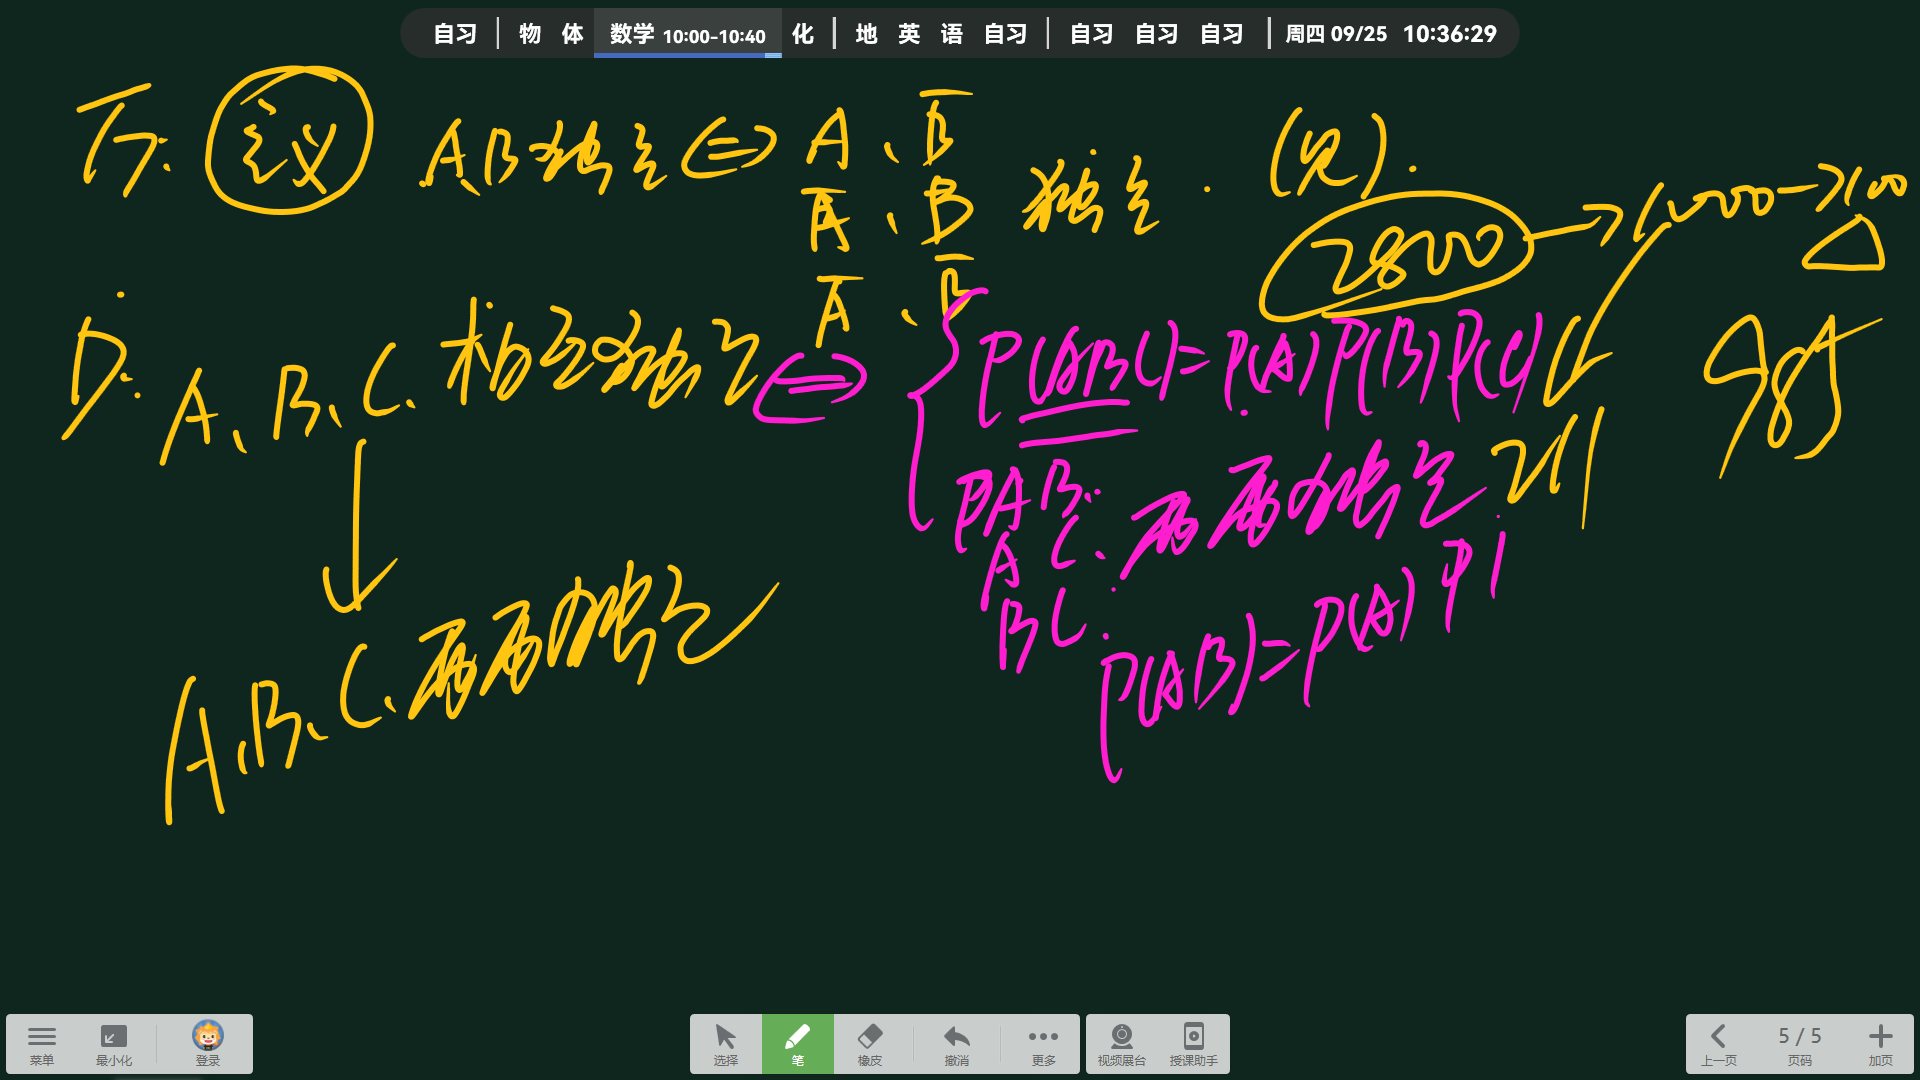 自习 | 物 体 数学 10:00-10:40 化 | 地 英 语 自习 | 自习 自习 自习 | 周四 09/25 10:36:29
A B 独立 ⇔ A、B̅
A̅、B 独立.
A̅、B̅
2800 → 1000 → 100
A、B、C 相互独立 ⇔ { P(ABC)=P(A)P(B)P(C)
AB
AC 两两独立
BC
P(AB)=P(A)P
A、B、C、两两独立
985
211
菜单 最小化 登录
选择 笔 橡皮 撤消 更多
视频展台 授课助手
上一页 5 / 5 页码 加页